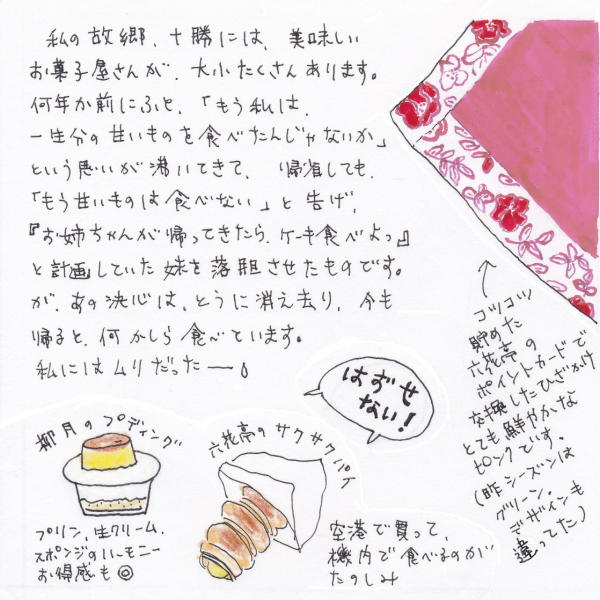 私の故郷、十勝には、美味しい
お菓子屋さんが、大小たくさんあります。
何年か前にふと、「もう私は、
一生分の甘いものを食べたんじゃないか」
という思いが湧いてきて、帰省しても、
「もう甘いものは食べない」と告げ、
『お姉ちゃんが帰ってきたら、ケーキ食べよっ』
と計画していた妹を落胆させたものです。
が、あの決心は、とうに消え去り、今も
帰ると、何かしら食べています。
私にはムリだったー。
コツコツ
貯めた
六花亭の
ポイントカードで
交換したひざかけ
とても鮮やかな
ピンクです。
(昨シーズンは
グリーン。
デザインも
違ってた)
はずせ
ない!
柳月のプディング
プリン、生クリーム、
スポンジのハーモニー
お得感も◎
六花亭のサクサクパイ
空港で買って、
機内で食べるのが
たのしみ